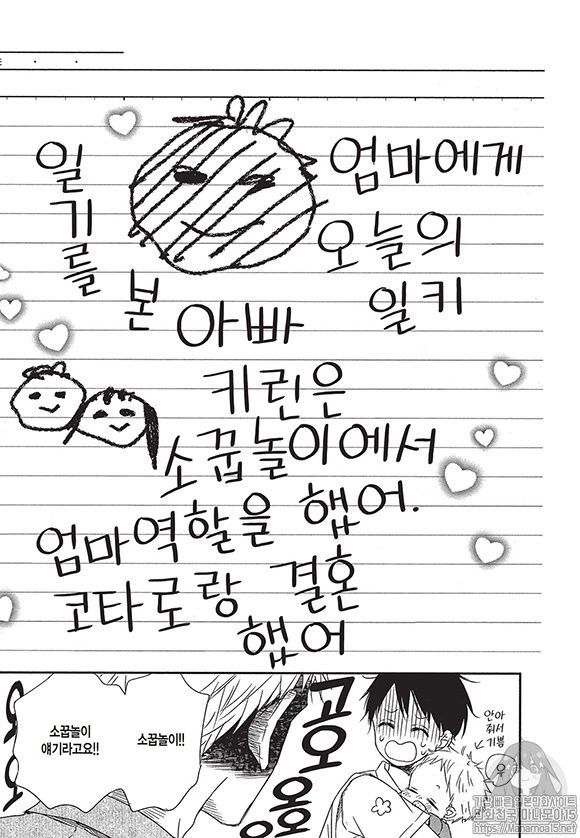 엄마에게
오늘의
일키
키린은
소꿉놀이에서
엄마역할을 햅어.
코타로랑 결혼
햅어
일기를
본
아빠
안아
줘서
기쁨
고오오옹
소꿉놀이!!
소꿉놀이
얘기라고요!!
오오